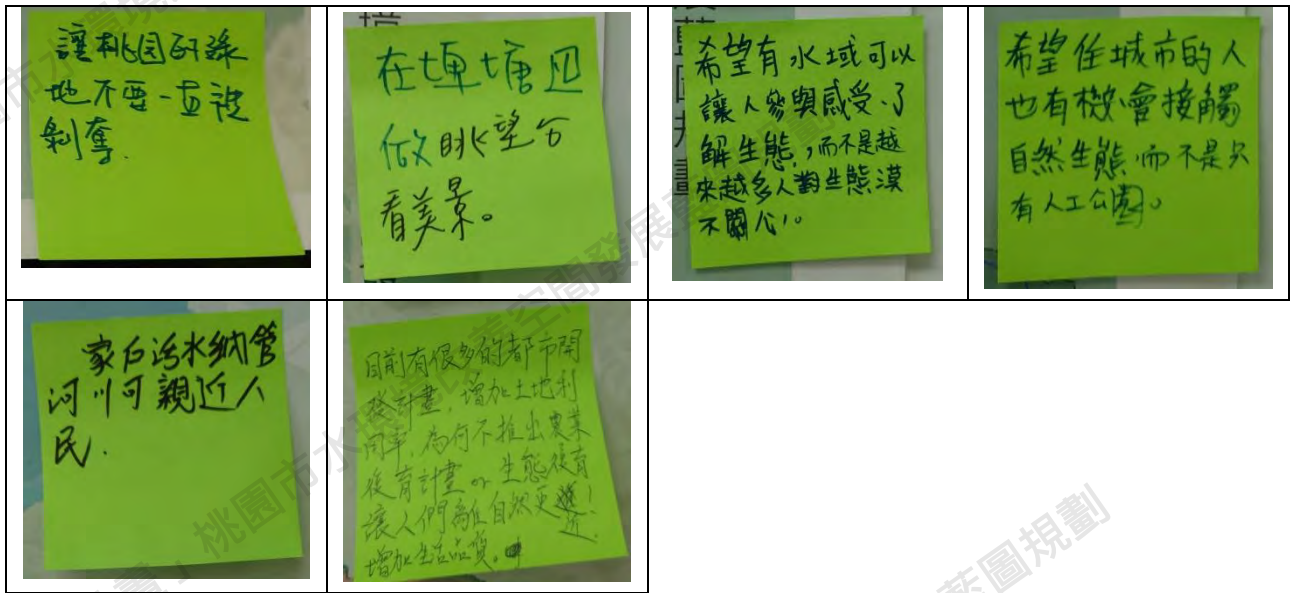 讓桃园的綠
地不要一直被
剝奪.
在埤塘边
做眺望台
看美景。
希望有水域可以
讓人參與感受、了
解生態,,而不是越
來越多人對生態漠
不關心。
希望住城市的人
也有機會接觸
自然生態,而不是只
有人工公園。
家戶污水納管
河川可親近人
民.
目前有很多的都市開
發計畫,增加土地利
用率,為何不推出農業
復育計畫or生態復育
讓人們離自然更近!
增加生活品質。
桃園市水環境改善空間發展藍圖規劃
藍圖規劃